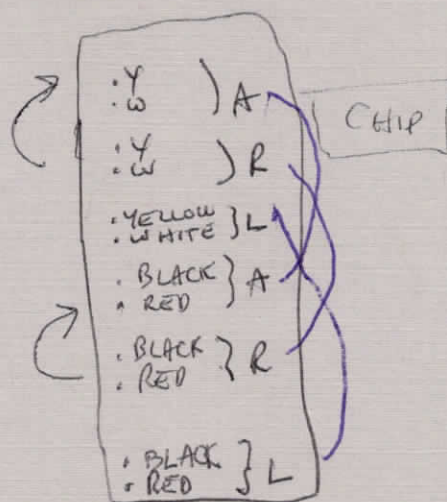 . Y
. W ) A
. Y
. W ) R
. YELLOW
. WHITE } L
. BLACK
. RED } A
. BLACK
. RED } R
. BLACK
. RED } L
CHIP